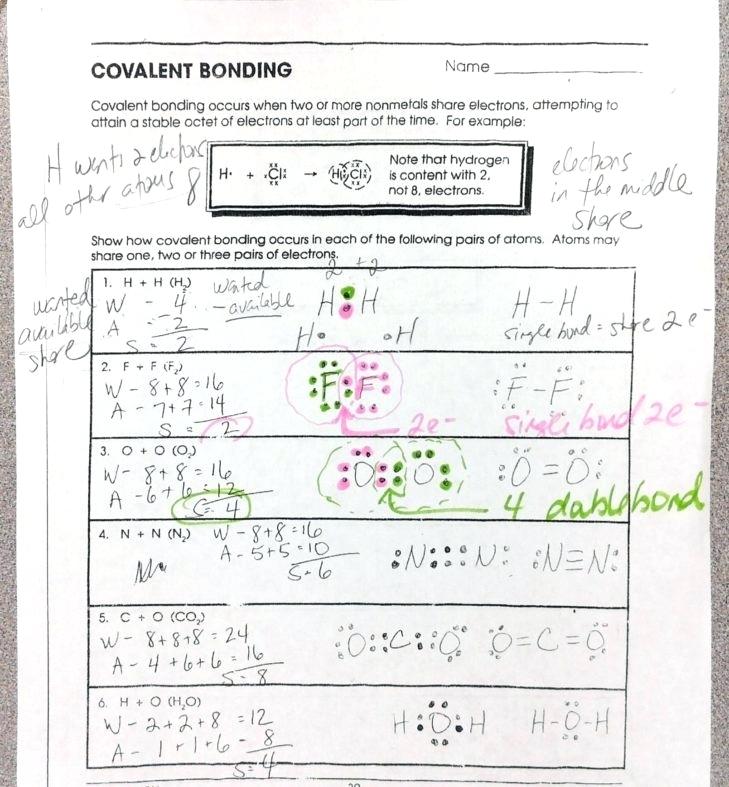 COVALENT BONDING
Name
Covalent bonding occurs when two or more nonmetals share electrons, attempting to
attain a stable octet of electrons at least part of the time. For example:
H wants 2 electrons
all other atoms 8
H· + Cl → H Cl
Note that hydrogen
is content with 2,
not 8, electrons.
electrons
in the middle
share
Show how covalent bonding occurs in each of the following pairs of atoms. Atoms may
share one, two or three pairs of electrons.
wanted
available
share
1. H + H (H₂)
W - 4
A - 2
S = 2
wanted
- available
2 + 2
H : H
H· ·H
H - H
single bond = share 2 e-
2. F + F (F₂)
W - 8+8=16
A - 7+7=14
S = 2
F F
2e-
:F-F:
single bond 2e-
3. O + O (O₂)
W - 8+8=16
A - 6+6=12
S= 4
:O::O:
:O=O:
4 dablebond
4. N + N (N₂)
W - 8+8=16
A - 5+5=10
S=6
:N:::N:
:N≡N:
5. C + O (CO₂)
W - 8+8+8=24
A - 4+6+6=16
S=8
:O::C::O
O=C=O
6. H + O (H₂O)
W - 2+2+8 =12
A - 1+1+6 - 8
S=4
H:O:H
H-O-H